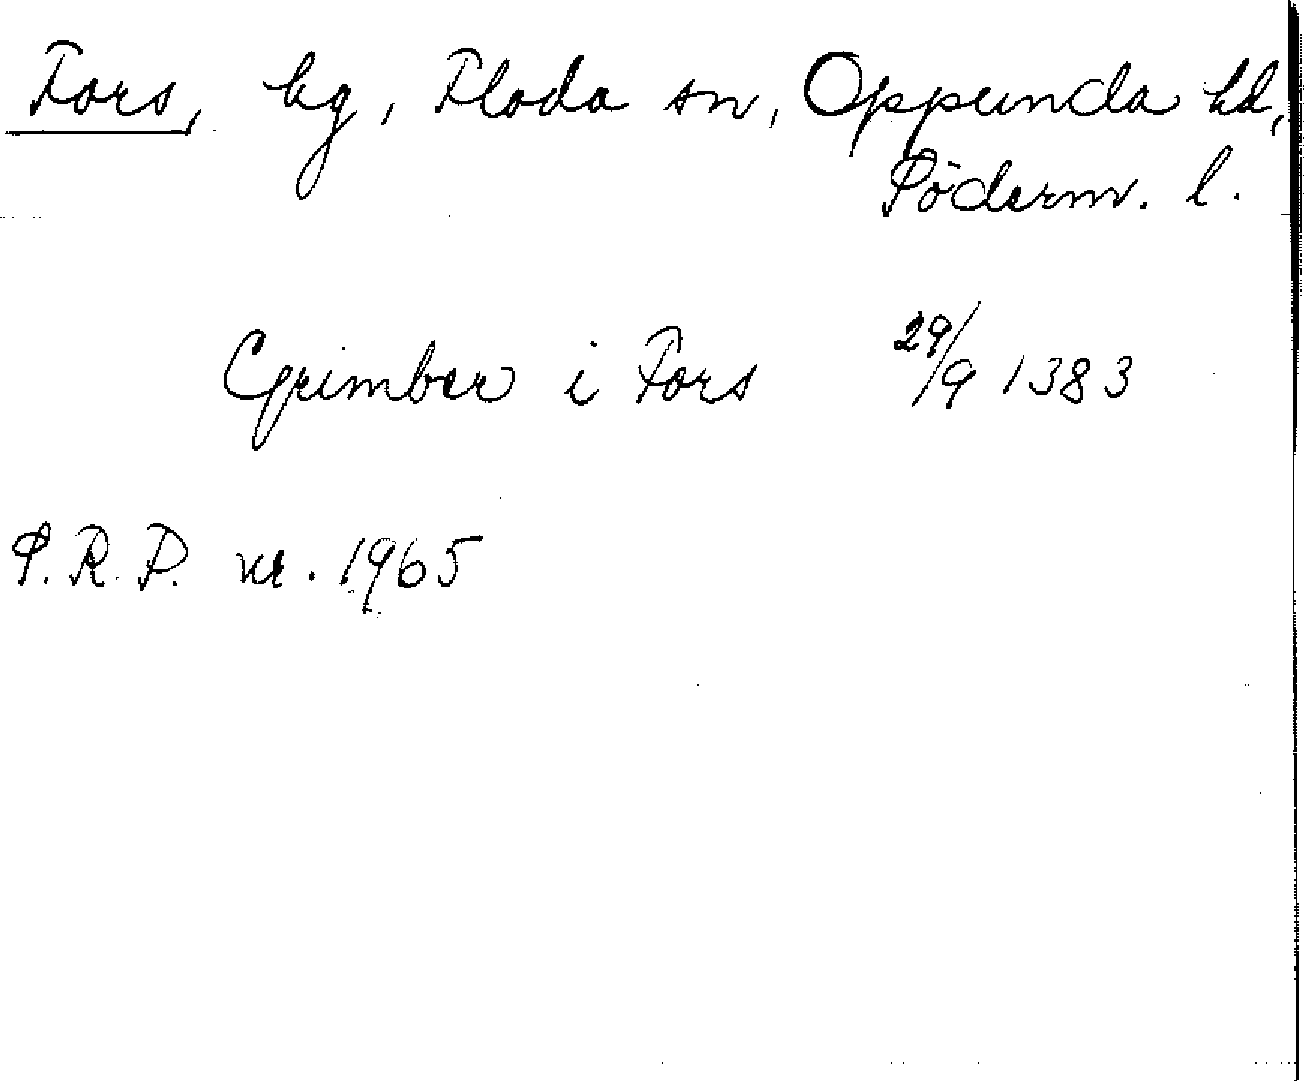 Fors, bg, Floda sn, Oppunda hd,
Söderm. l.
Grimber i Fors 29/9 1383
S.R.P. nr. 1965